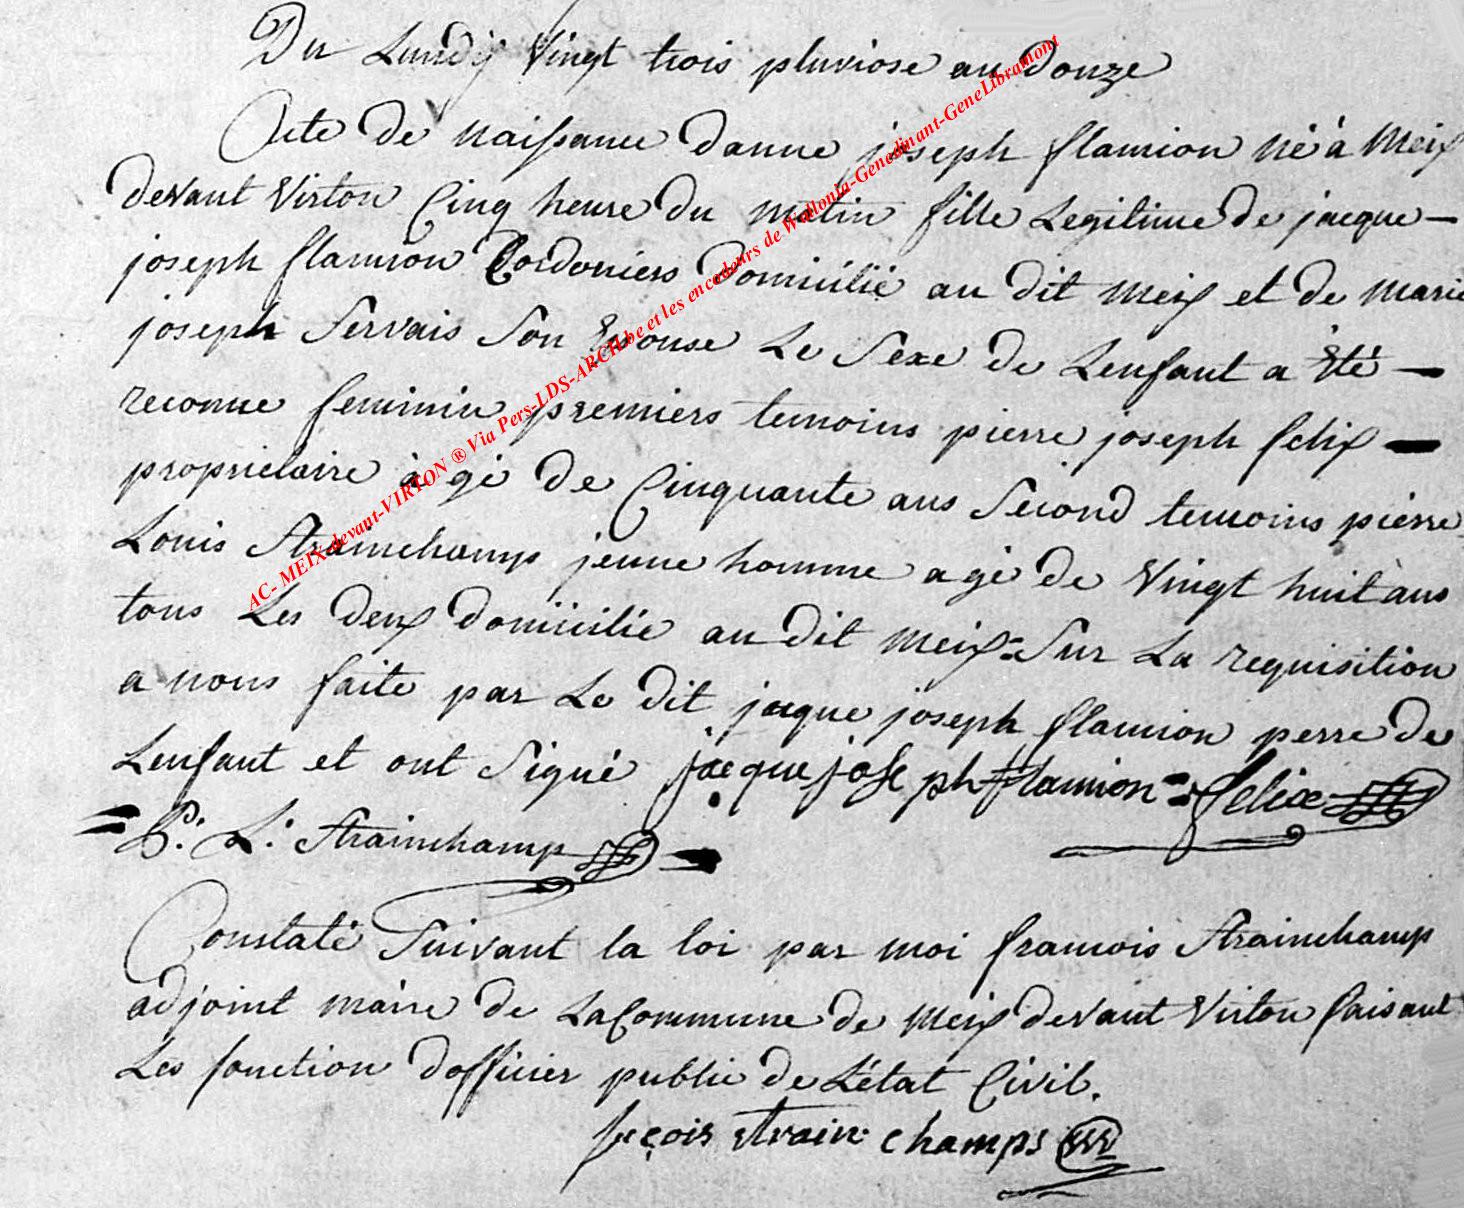 Du Lundÿ Vingt trois pluviose an Douze
Acte De Naissance Danne joseph flamion né à Meix
devant Virton Cinq heure Du matin fille Legitime de jacque —
joseph flamion Cordoniers Domicilié au dit Meix et de Marie
joseph Servais Son Epouse Le Sexe de Lenfant a Eté —
reconnue feminin premiers temoins pierre joseph felix —
proprietaire àgé De Cinquante ans Second temoins pierre
Louis Strainchamp jeune homme agé de Vingt huit ans
tous Les Deux domicilié au Dit Meix = Sur La requisition
a nous faite par Le Dit jaque joseph flamion perre De
Lenfant et ont Signé jacque joseph flamion = felix
= P. L. Strainchamp
Constaté Suivant la loi par moi francois Strainchamp
adjoint maire de La Commune de Meix devant Virton faisant
Les fonction Dofficier public de L'état Civil.
fçois Strainchamps
AC- MEIX-devant-VIRTON ® Via Pers-LDS-ARCH.be et les encodeurs de Wallonia-Genedinant-GeneLibramont